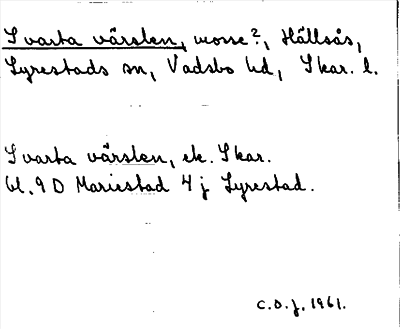 Svarta värslen, mosse?, Hällsås,
Lyrestads sn, Vadsbo hd, Skar. l.
Svarta värslen, ek. Skar.
bl. 9 D Mariestad 4 j Lyrestad.
C.O.J. 1961.